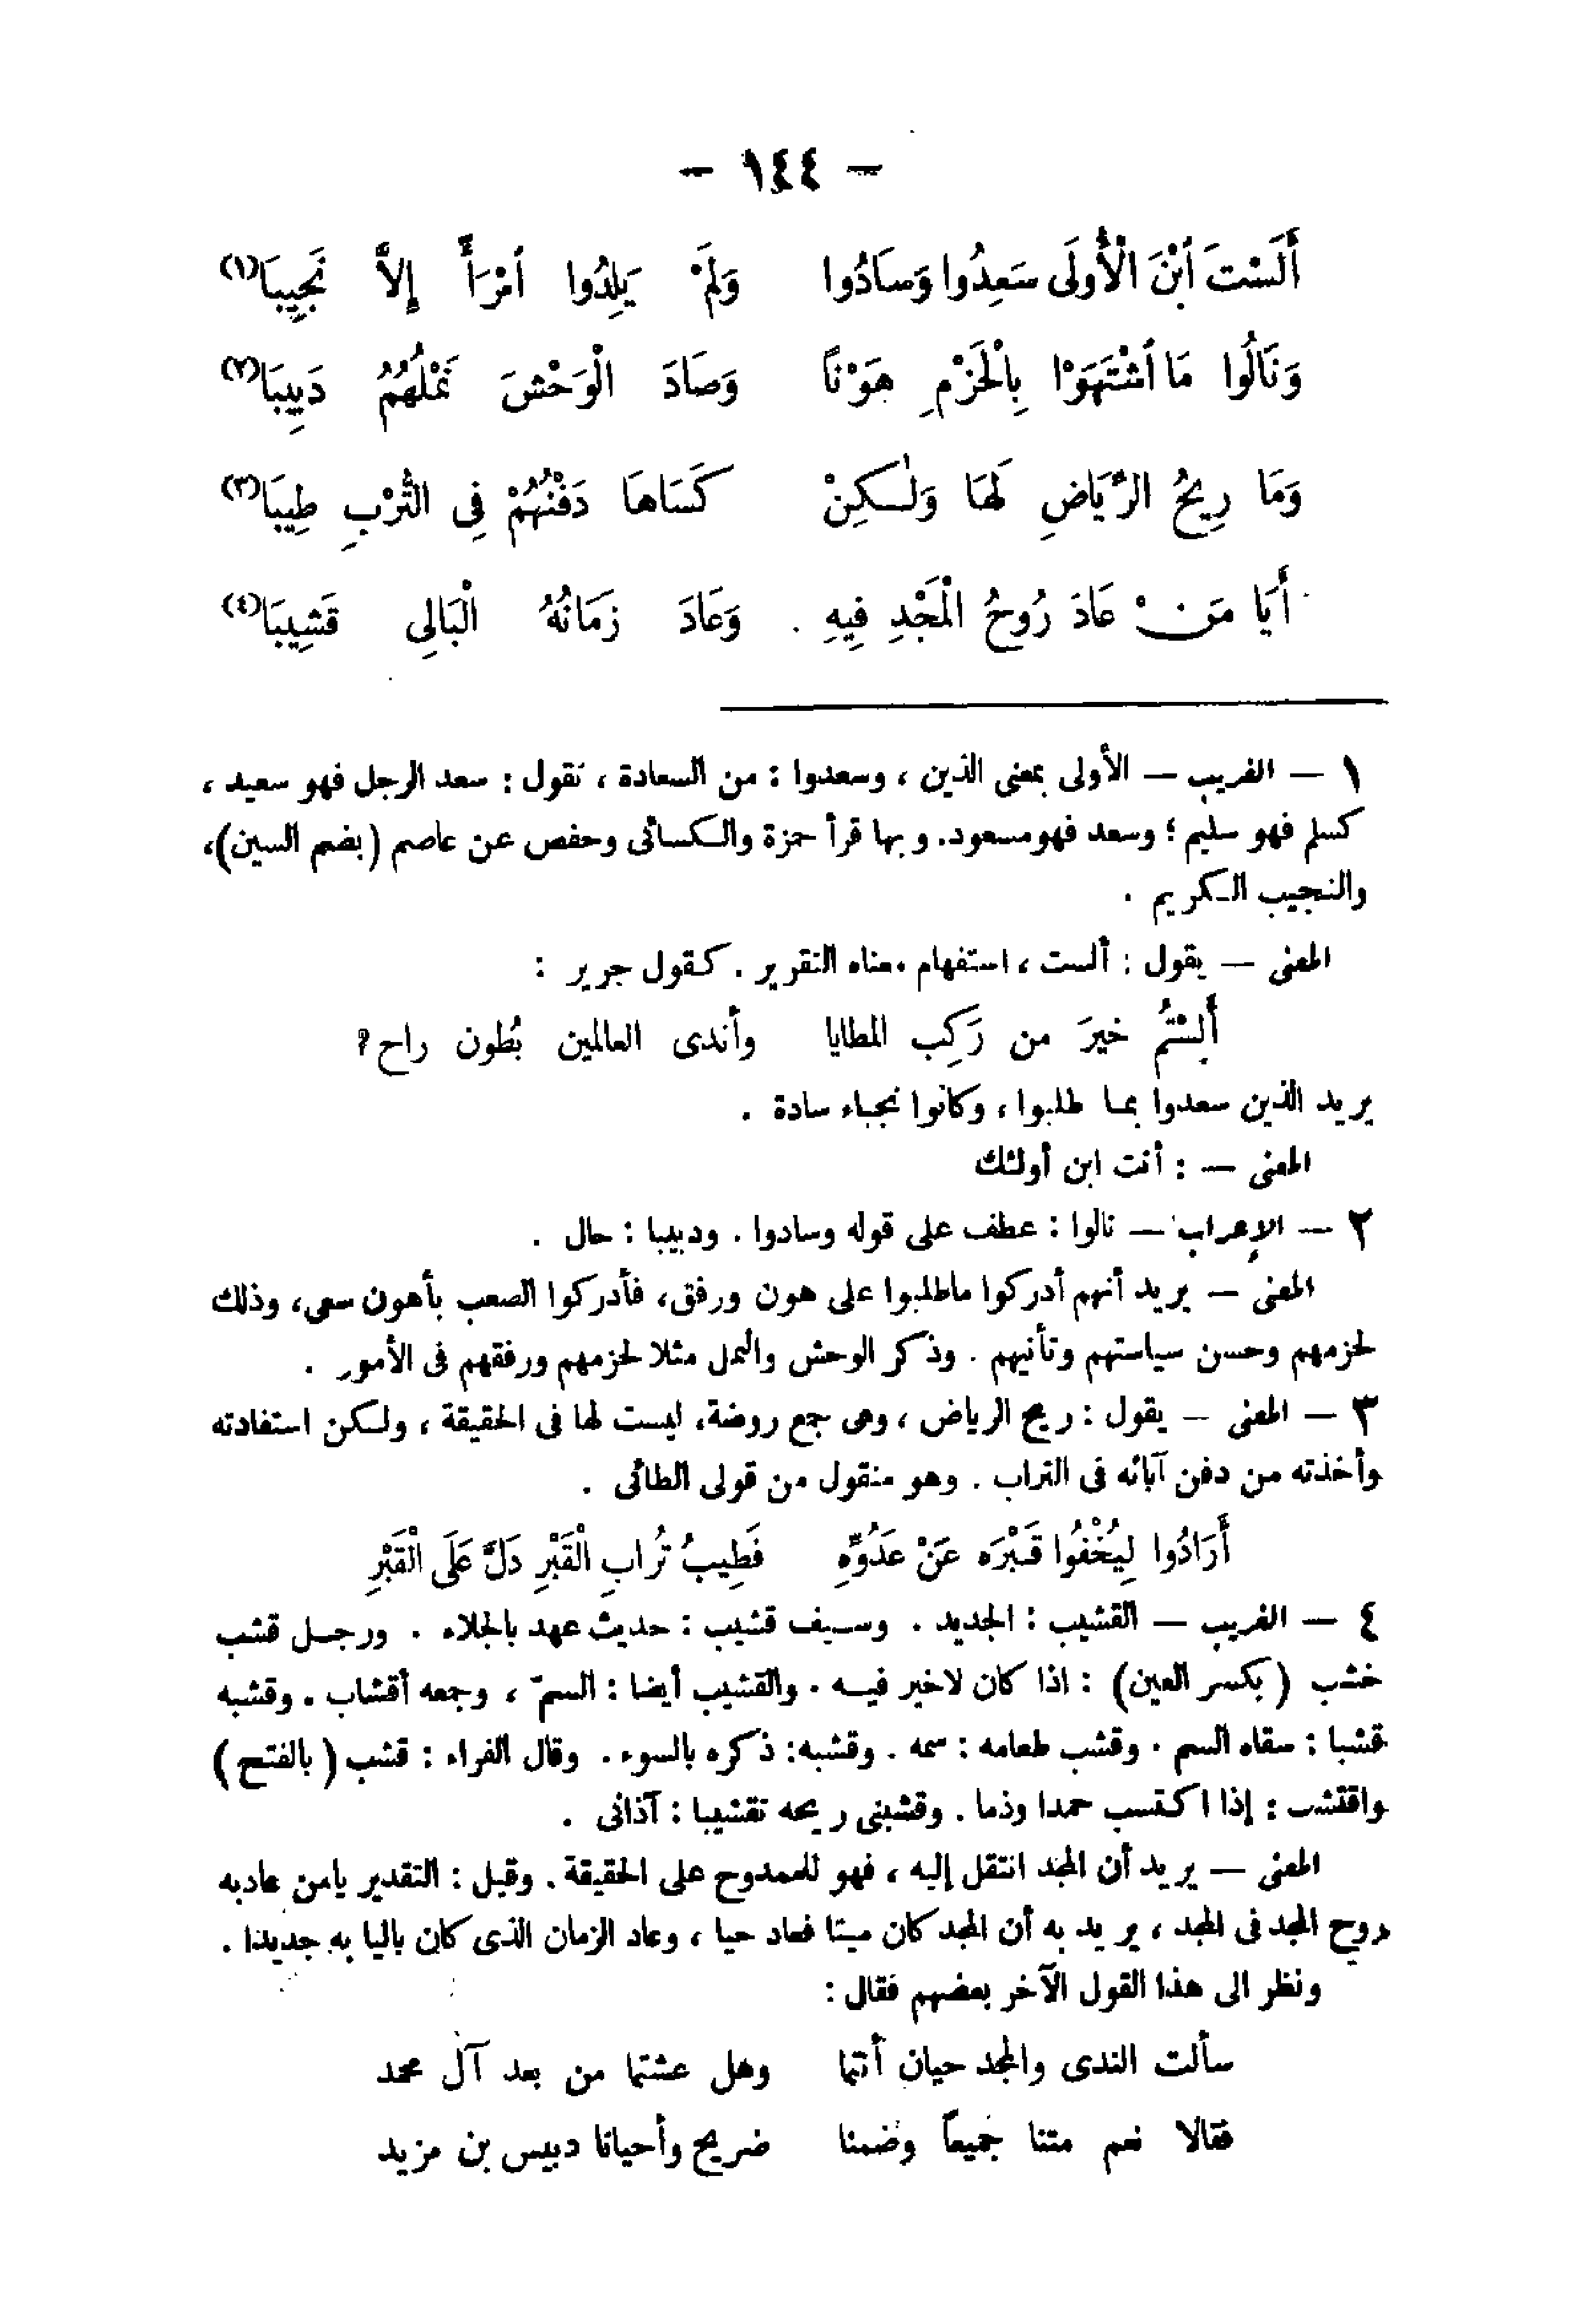 — ١٤٤ —
أَلَسْتَ ابْنَ الْأُولَى سَعِدُوا وَسَادُوا وَلَمْ يَلِدُوا امْرَأً إِلاَّ نَجِيبَا(١)
وَنَالُوا مَا اشْتَهَوْا بِالْحَزْمِ هَوْنًا وَصَادَ الْوَحْشَ نَمْلُهُمُ دَبِيبَا(٢)
وَمَا رِيحُ الرِّيَاضِ لَهَا وَلٰكِنْ كَسَاهَا دَفْنُهُمْ فِى التُّرْبِ طِيبَا(٣)
أَيَا مَنْ عَادَ رُوحُ الْمَجْدِ فِيهِ وَعَادَ زَمَانُهُ الْبَالِى قَشِيبَا(٤)
١ — الغريب — الأولى بمعنى الذين ، وسعدوا : من السعادة ، تقول : سعد الرجل فهو سعيد ،
كسلم فهو سليم ؛ وسعد فهو مسعود. وبها قرأ حمزة والكسائى وحفص عن عاصم (بضم السين)،
والنجيب الكريم .
المعنى — يقول : ألست ، استفهام معناه التقرير . كقول جرير :
أَلَسْتُمُ خيرَ من رَكِب المطايا وأندى العالمين بُطون راح؟
يريد الذين سعدوا بما طلبوا ، وكانوا نجباء سادة .
المعنى — : أنت ابن أولئك
٢ — الإعراب — نالوا : عطف على قوله وسادوا . ودبيبا : حال .
المعنى — يريد أنهم أدركوا ماطلبوا على هون ورفق، فأدركوا الصعب بأهون سعى، وذلك
لحزمهم وحسن سياستهم وتأنيهم . وذكر الوحش والنمل مثلا لحزمهم ورفقهم فى الأمور .
٣ — المعنى — يقول : ريح الرياض ، وهى جمع روضة، ليست لها فى الحقيقة ، ولكن استفادته
وأخذته من دفن آبائه فى التراب . وهو منقول من قولى الطائى .
أَرَادُوا لِيُخْفُوا قَبْرَه عَنْ عَدُوِّهِ فَطِيبُ تُرَابِ الْقَبْرِ دَلَّ عَلَى الْقَبْرِ
٤ — الغريب — القشيب : الجديد . وسيف قشيب : حديث عهد بالجلاء . ورجل قشب
خشب (بكسر العين) : اذا كان لاخير فيه . والقشيب أيضا : السمّ ، وجمعه أقشاب . وقشبه
قشبا : سقاه السم . وقشب طعامه : سمه . وقشبه : ذكره بالسوء . وقال الفراء : قشب (بالفتح)
واقتشب : إذا اكتسب حمدا وذما . وقشبنى ريحه تقشيبا : آذانى .
المعنى — يريد أن المجد انتقل إليه ، فهو للممدوح على الحقيقة . وقيل : التقدير يامن عاد به
روح المجد فى المجد ، يريد به أن المجد كان ميتا فعاد حيا ، وعاد الزمان الذى كان باليا به جديدا .
ونظر الى هذا القول الآخر بعضهم فقال :
سألت الندى والمجد حيان أنتما وهل عشتما من بعد آل محمد
فقالا نعم متنا جميعاً وضمنا ضريح وأحيانا دبيس بن مزيد